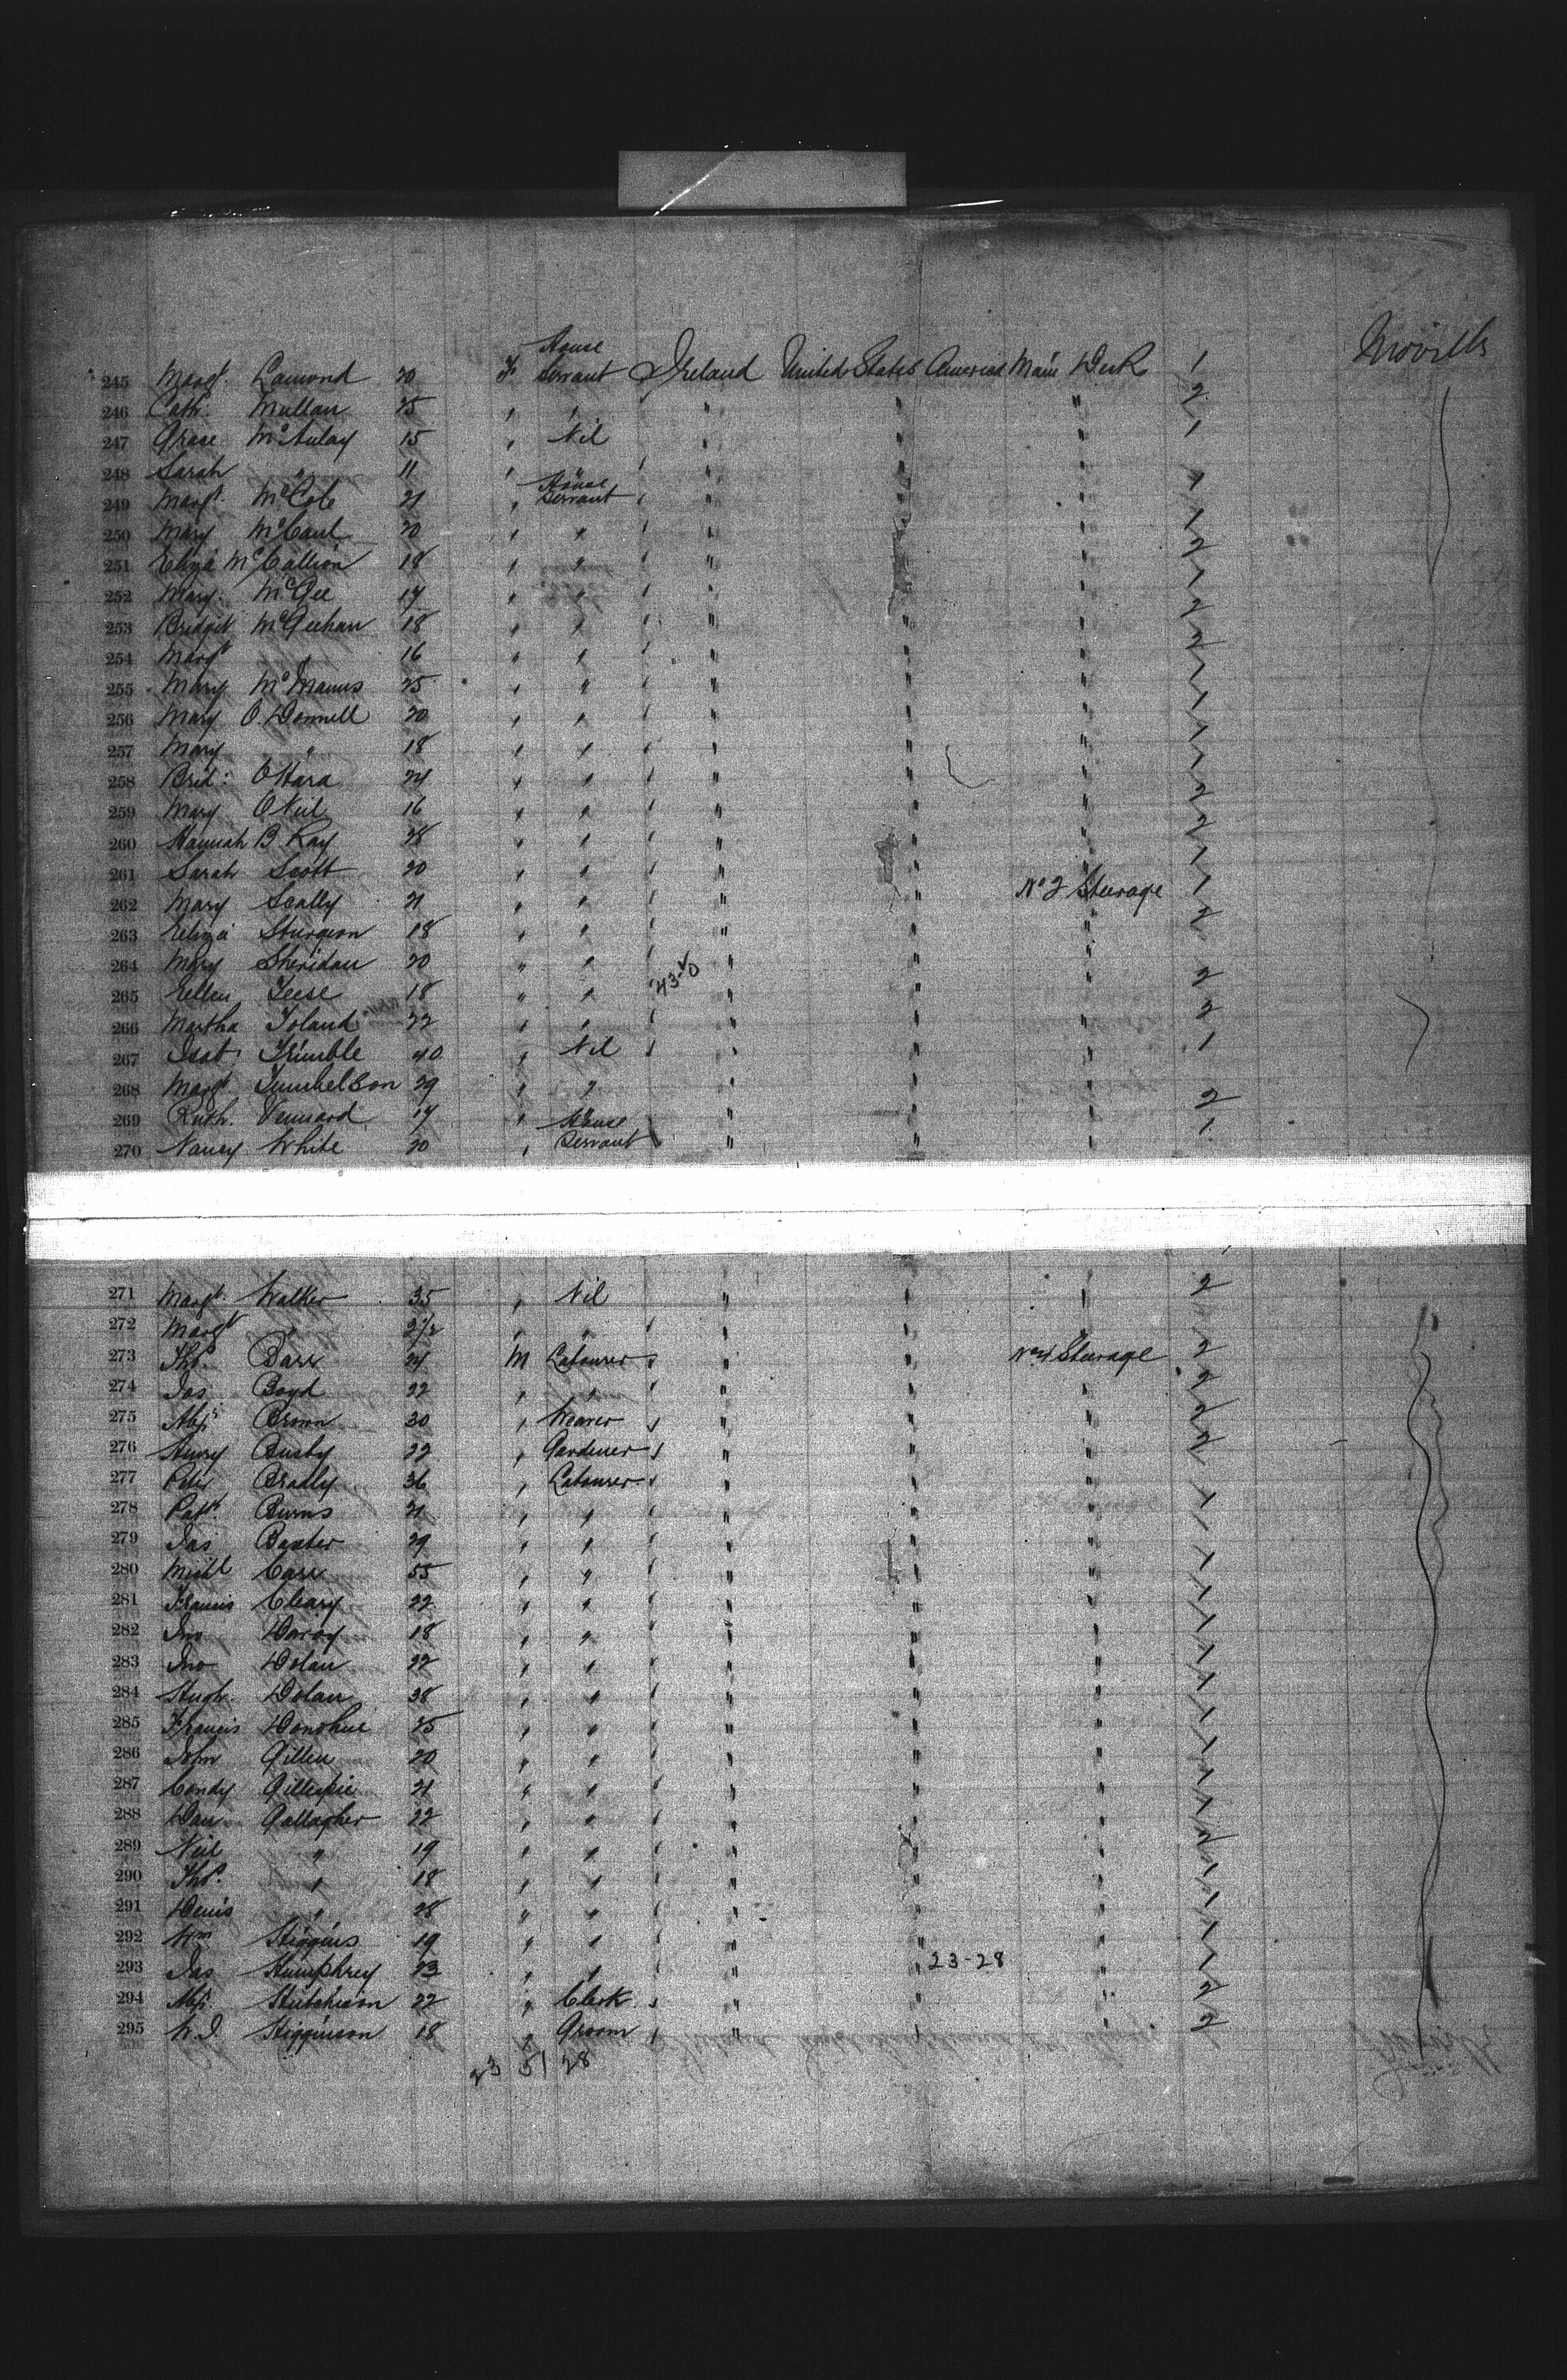 Moville
245 Margt. Lamond 20 F House Servant Ireland United States America Main Deck 1
246 Cath. Mullan 25 " " " " " 2
247 Grace McAulay 15 " Nil " " " 1
248 Sarah " 11 " " " " "
249 Margt. McCole 21 " House Servant " " " 1
250 Mary McCaul 20 " " " " " 1
251 Eliza McCallion 18 " " " " " 2
252 Mary McGee 17 " " " " " 1
253 Bridget McGeehan 18 " " " " " 2
254 Margt " 16 " " " " " 2
255 Mary McManus 25 " " " " " 1
256 Mary O.Donnell 20 " " " " " 1
257 Mary " 18 " " " " " 1
258 Brid: OHara 24 " " " " " 1
259 Mary ONeil 16 " " " " " 2
260 Hannah B Ray 28 " " " " " 2
261 Sarah Scott 20 " " " " " 1
262 Mary Scally 21 " " " " No 2 Steerage 1
263 Eliza Sturgeon 18 " " " " " 2
264 Mary Sheridan 20 " " " " "
43-0
265 Ellen Teese 18 " " " " " 2
266 Martha Toland 22 " " " " " 2
267 Isab. Trimble 40 " Nil " " " 1
268 Margt. Tumbelson 29 " " " " "
269 Ruth. Vennard 17 " " " " " 2
270 Nancy White 20 " House Servant " " " 1
271 Margt. Walker 35 " Nil " " " 2
272 Margt " 2 1/2 " " " " "
273 Thos. Barr 24 M Labourer " " No 4 Steerage 2
274 Jas Boyd 22 " " " " " 2
275 Alexr Brown 30 " Weaver " " " 2
276 Henry Busby 22 " Gardener " " " 2
277 Peter Bradly 36 " Labourer " " "
278 Patk. Burns 21 " " " " " 1
279 Jas Baxter 29 " " " " " 1
280 Michl Carr 55 " " " " " 1
281 Francis Cleary 22 " " " " " 1
282 Jno Darcy 18 " " " " " 1
283 Jno Dolan 22 " " " " " 1
284 Hugh. Dolan 38 " " " " " 1
285 Francis Donohue 25 " " " " " 1
286 John Gillen 20 " " " " " 1
287 Condy Gillespie 21 " " " " " 1
288 Dan Gallagher 22 " " " " " 1
289 Neil " 19 " " " " " 2
290 Thos. " 18 " " " " " 1
291 Denis " 28 " " " " " 1
292 Wm Higgins 19 " " " " " 1
293 Jas Humphrey 23 " " " " 23-28 " 1
294 Alexr Hutchison 22 " Clerk " " " 2
295 W.J. Higginson 18 " Groom " " " 2
23 51 28